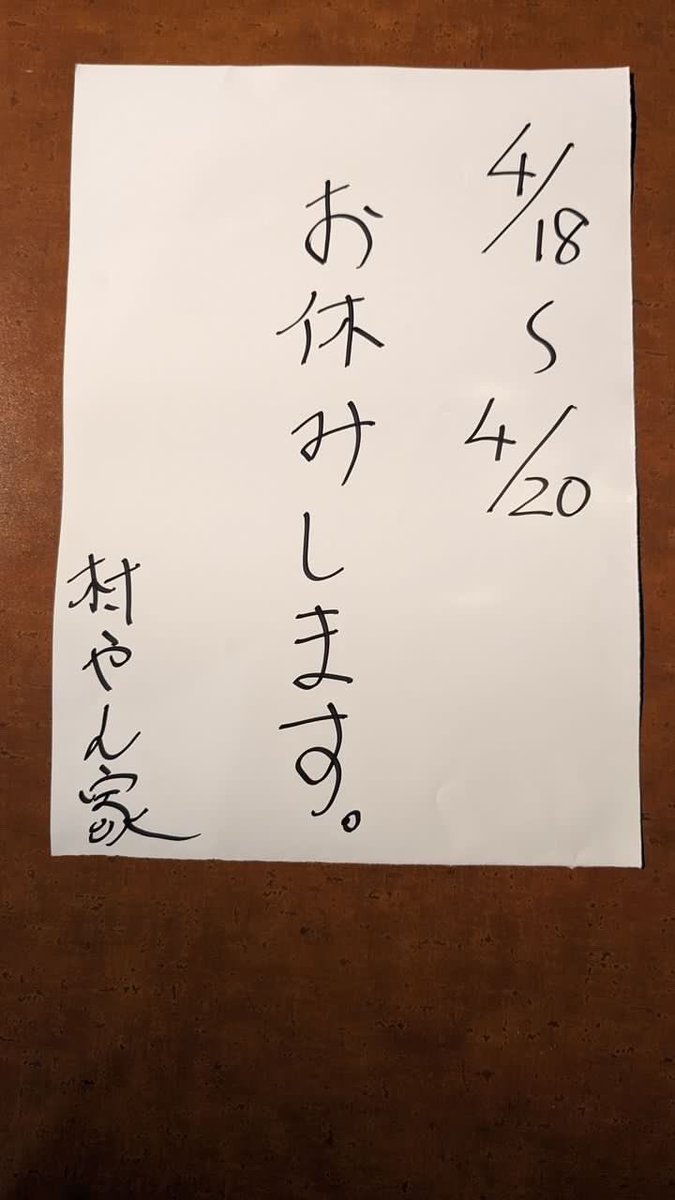 4/18〜4/20
お休みします。
村やん家